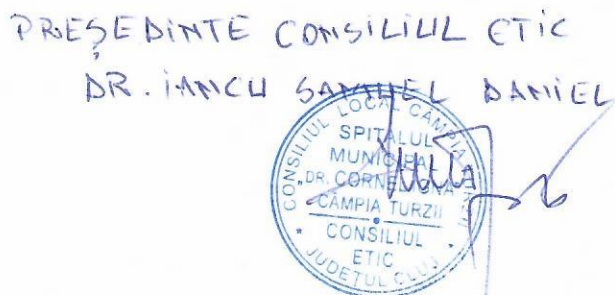 PREȘEDINTE CONSILIUL ETIC
DR. IANCU SAMUEL DANIEL
CONSILIUL LOCAL CÂMPIA TURZII
SPITALUL
MUNICIPAL
"DR. CORNEL
CÂMPIA TURZII
CONSILIUL
ETIC
JUDEȚUL CLUJ